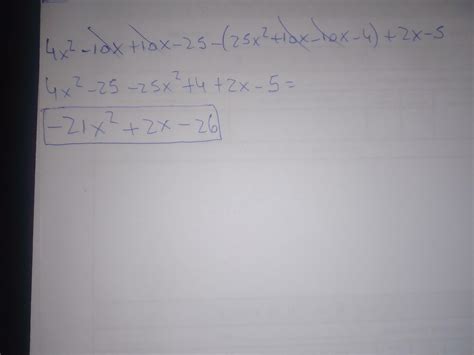 4x² - 10x + 10x - 25 - (25x² + 10x - 10x - 4) + 2x - 5
4x² - 25 - 25x² + 4 + 2x - 5 =
-21x² + 2x - 26